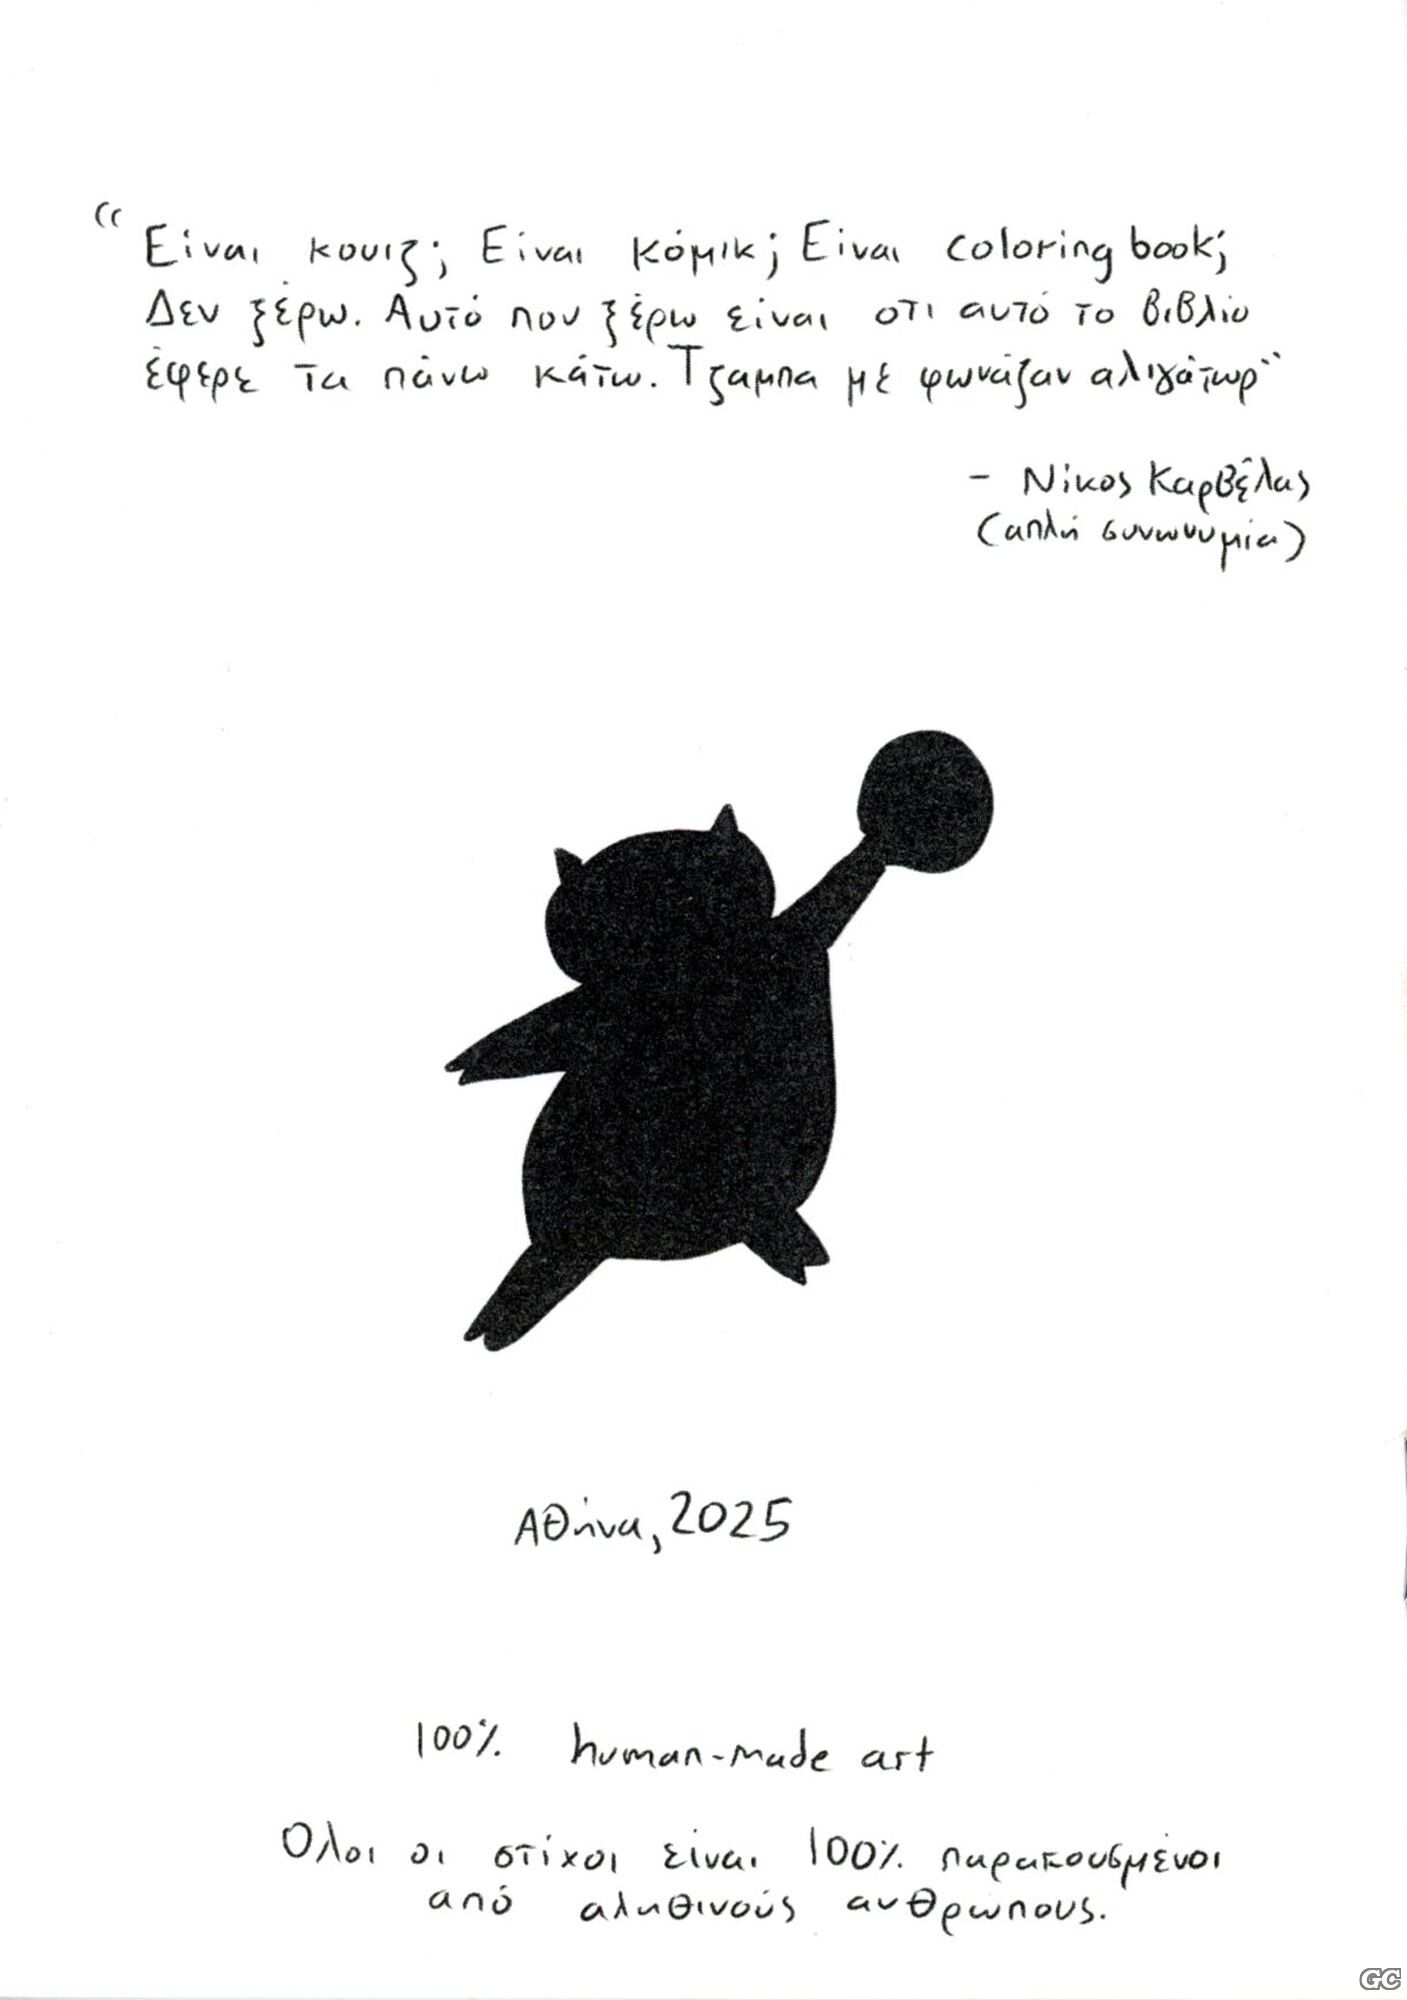 “Είναι κουιζ; Είναι κόμικ; Είναι coloring book;
Δεν ξέρω. Αυτό που ξέρω είναι οτι αυτό το βιβλίο
έφερε τα πάνω κάτω. Τζαμπα με φωνάζαν αλιγάτωρ”
- Νίκος Καρβέλας
(απλή συνωνυμία)
Αθήνα, 2025
100% human-made art
Όλοι οι στίχοι είναι 100% παρακουσμένοι
από αληθινούς ανθρώπους.
GC